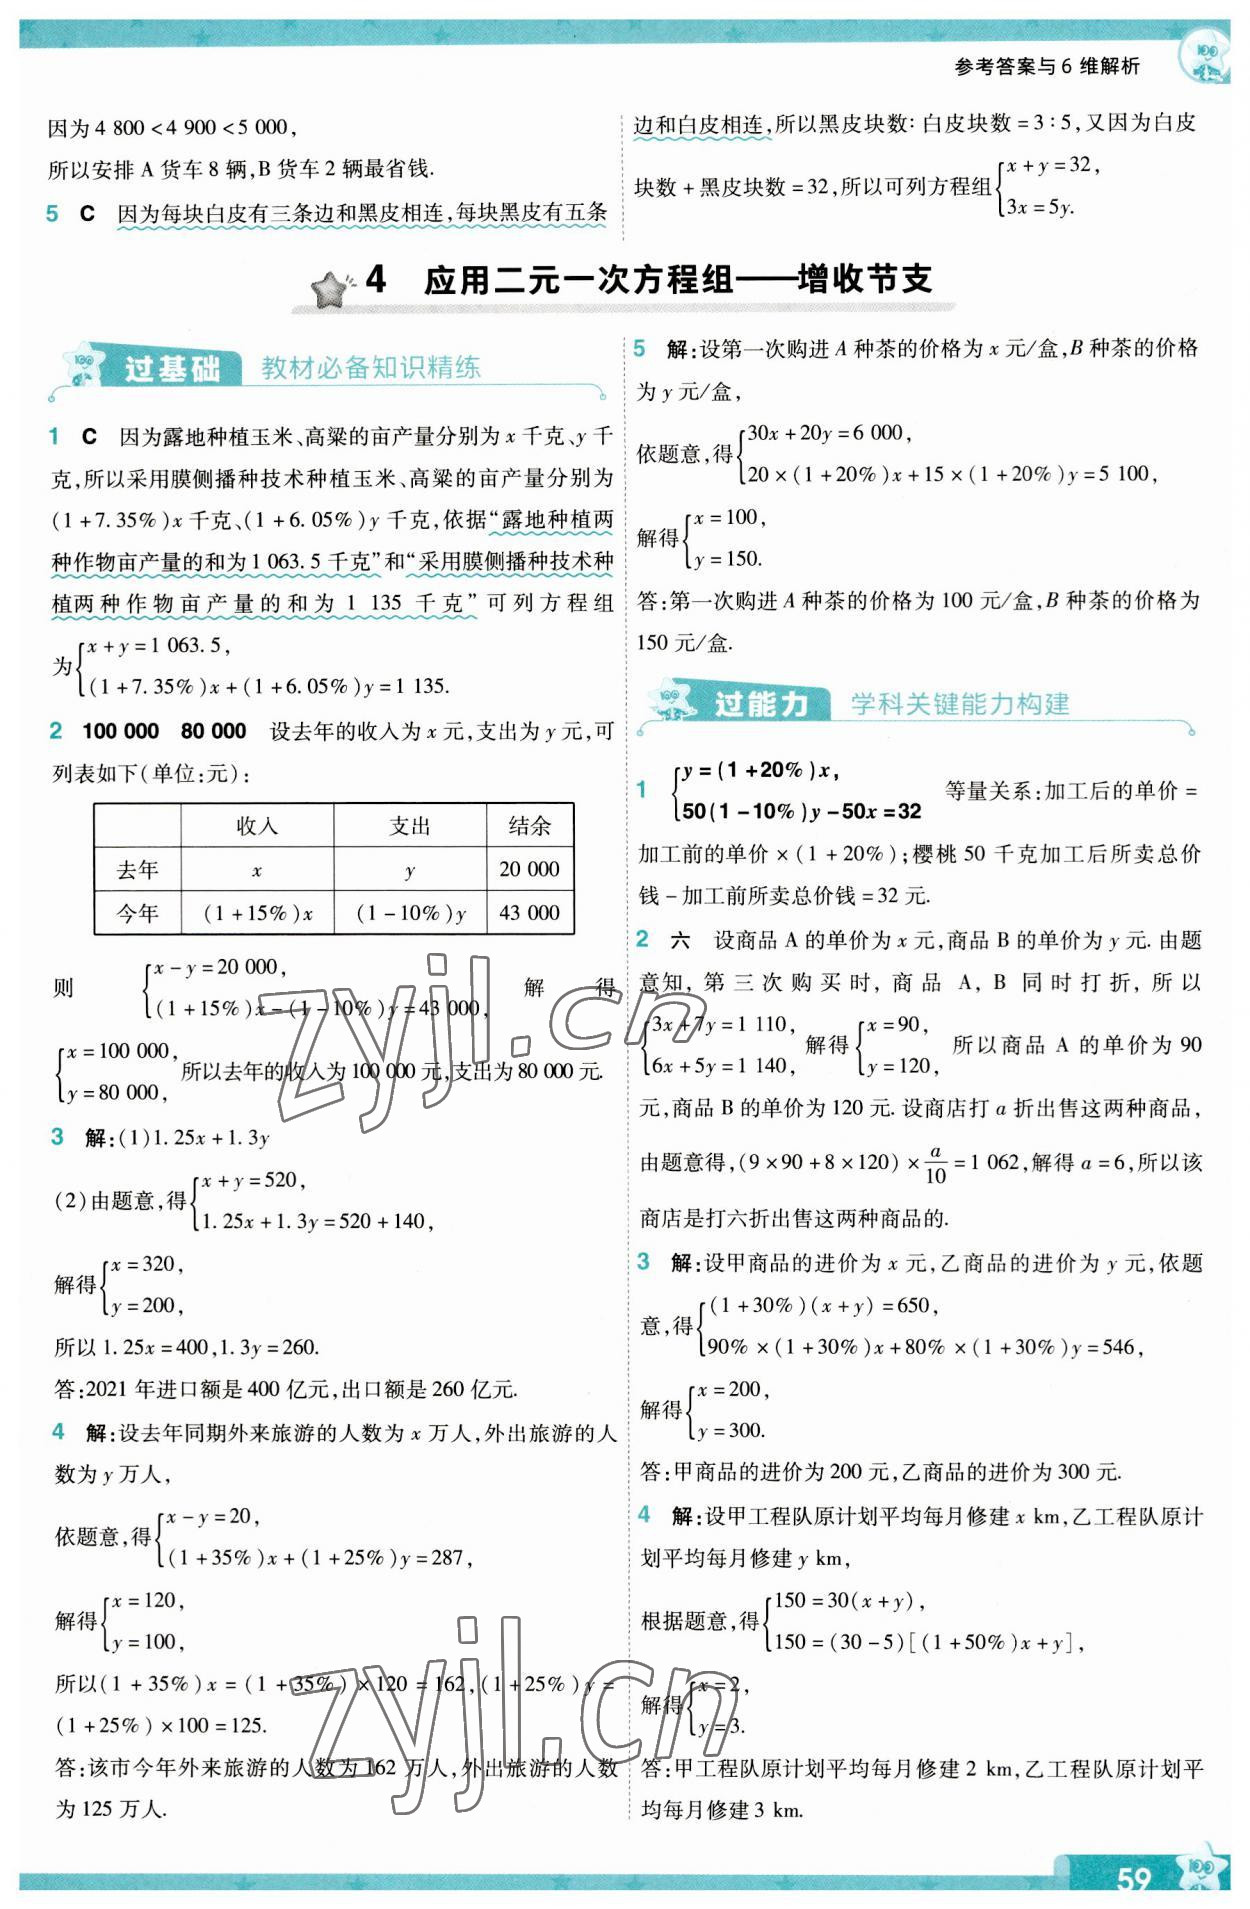 参考答案与6维解析
因为4 800<4 900<5 000,
所以安排A货车8辆,B货车2辆最省钱.
5 C 因为每块白皮有三条边和黑皮相连,每块黑皮有五条
边和白皮相连,所以黑皮块数:白皮块数=3:5,又因为白皮
块数+黑皮块数=32,所以可列方程组{x+y=32,
3x=5y.
4 应用二元一次方程组——增收节支
过基础 教材必备知识精练
1 C 因为露地种植玉米、高粱的亩产量分别为x千克、y千
克,所以采用膜侧播种技术种植玉米、高粱的亩产量分别为
(1+7.35%)x千克、(1+6.05%)y千克,依据“露地种植两
种作物亩产量的和为1 063.5千克”和“采用膜侧播种技术种
植两种作物亩产量的和为1 135千克”可列方程组
为{x+y=1 063.5,
(1+7.35%)x+(1+6.05%)y=1 135.
2 100 000 80 000 设去年的收入为x元,支出为y元,可
列表如下(单位:元):
收入 支出 结余
去年 x y 20 000
今年 (1+15%)x (1-10%)y 43 000
则{x-y=20 000,
(1+15%)x-(1-10%)y=43 000, 解得
{x=100 000,
y=80 000, 所以去年的收入为100 000元,支出为80 000元.
3 解:(1)1.25x+1.3y
(2)由题意,得{x+y=520,
1.25x+1.3y=520+140,
解得{x=320,
y=200,
所以1.25x=400,1.3y=260.
答:2021年进口额是400亿元,出口额是260亿元.
4 解:设去年同期外来旅游的人数为x万人,外出旅游的人
数为y万人,
依题意,得{x-y=20,
(1+35%)x+(1+25%)y=287,
解得{x=120,
y=100,
所以(1+35%)x=(1+35%)×120=162,(1+25%)y=
(1+25%)×100=125.
答:该市今年外来旅游的人数为162万人,外出旅游的人数
为125万人.
5 解:设第一次购进A种茶的价格为x元/盒,B种茶的价格
为y元/盒,
依题意,得{30x+20y=6 000,
20×(1+20%)x+15×(1+20%)y=5 100,
解得{x=100,
y=150.
答:第一次购进A种茶的价格为100元/盒,B种茶的价格为
150元/盒.
过能力 学科关键能力构建
1 {y=(1+20%)x,
50(1-10%)y-50x=32 等量关系:加工后的单价=
加工前的单价×(1+20%);樱桃50千克加工后所卖总价
钱-加工前所卖总价钱=32元.
2 六 设商品A的单价为x元,商品B的单价为y元.由题
意知,第三次购买时,商品A,B同时打折,所以
{3x+7y=1 110,
6x+5y=1 140, 解得{x=90,
y=120, 所以商品A的单价为90
元,商品B的单价为120元.设商店打a折出售这两种商品,
由题意得,(9×90+8×120)×a/10=1 062,解得a=6,所以该
商店是打六折出售这两种商品的.
3 解:设甲商品的进价为x元,乙商品的进价为y元,依题
意,得{(1+30%)(x+y)=650,
90%×(1+30%)x+80%×(1+30%)y=546,
解得{x=200,
y=300.
答:甲商品的进价为200元,乙商品的进价为300元.
4 解:设甲工程队原计划平均每月修建x km,乙工程队原计
划平均每月修建y km,
根据题意,得{150=30(x+y),
150=(30-5)[(1+50%)x+y],
解得{x=2,
y=3.
答:甲工程队原计划平均每月修建2 km,乙工程队原计划平
均每月修建3 km.
zyjl.cn
zyjl.cn
59